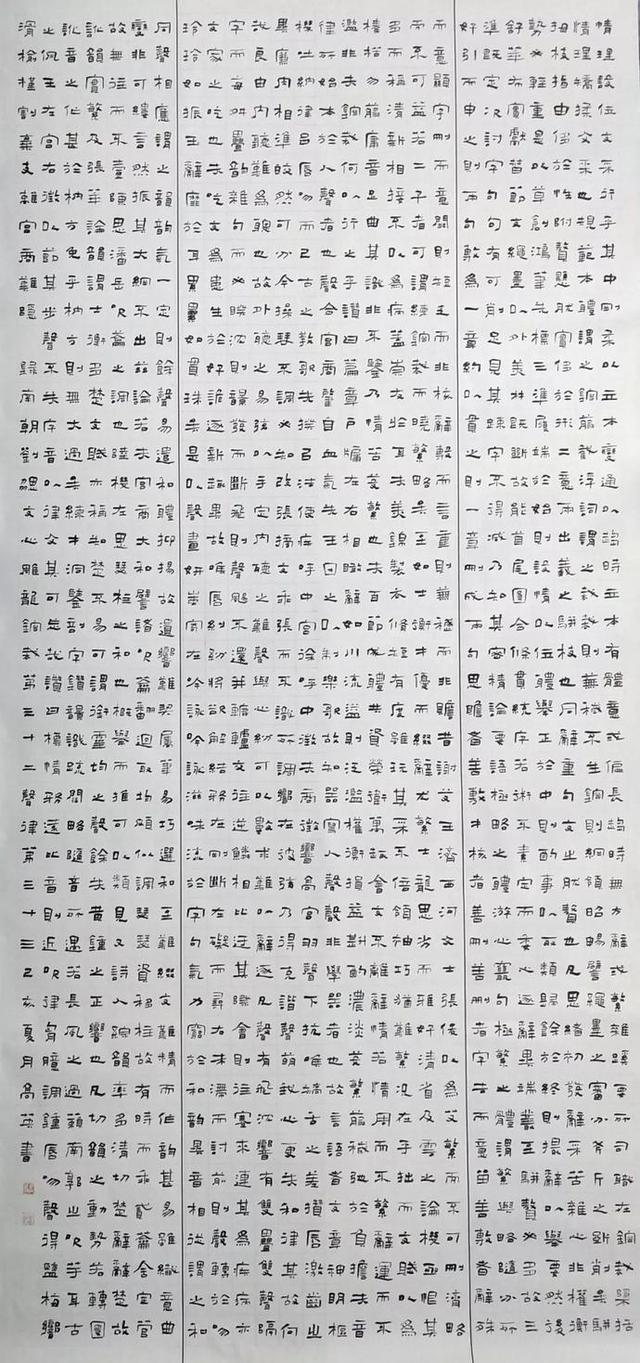 情理設位文采行乎其中剛柔以立本變通以趨時立本有體意或偏長趨時無方辭或繁雜蹊要所司職在鎔裁檃括
情理矯揉文采也規範本體謂之鎔剪截浮詞謂之裁裁則蕪穢不生鎔則綱領昭暢譬繩墨之審分斧斤之斫削矣駢
拇枝指由侈於性附贅懸肬實侈於形二意兩出義之駢枝也同辭重句文之肬贅也凡思緒初發辭采苦雜心非權衡
勢必輕重是以草創鴻筆先標三準履端於始則設情以位體舉正於中則酌事以取類歸餘於終則撮辭以舉要然後
舒華布實獻替節文繩墨以外美材既斫故能首尾圓合條貫統序若術不素定而委心逐辭異端叢至駢贅必多故三
準既定次討字句句有可削足見其疏字不得減乃知其密精論要語極略之體游心竄句極繁之體謂繁與略隨分所
好引而申之則兩句敷為一章約以貫之則一章刪成兩句思贍者善敷才核者善刪善刪者字去而意留善敷者辭殊
而意顯字刪而意闕則短乏而非核辭敷而言重則蕪穢而非贍昔謝艾王濟西河文士張俊以為艾繁而不可刪濟略
而不可益若二子者可謂練鎔裁而曉繁略矣至如士衡才優而綴辭尤繁士龍思劣而雅好清省及雲之論機亟恨其
多而稱清新相接不以為病蓋崇友于耳夫美錦製衣脩短有度雖玩其采不倍領袖巧猶難繁況在乎拙而文賦以為
榛楛勿剪庸音足曲其識非不鑒乃情苦芟繁也夫百節成體共資榮衛萬趣會文不離辭情若情周而不繁辭運而不
濫非夫鎔裁何以行之乎讚曰篇章戶牖左右相瞰辭如川流溢則泛濫權衡損益斟酌濃淡芟繁剪穢弛於負擔夫音
律所始本於人聲者也聲合宮商肇自血氣先王因之以制樂歌故知器寫人聲聲非學器者也故言語者文章神明樞
機吐納律呂唇吻而已古之教歌先揆以法使疾呼中宮徐呼中徵夫徵羽響高宮商聲下抗喉矯舌之差攢唇激齒之
異廉肉相準皎然可分今操琴不調必知改張摘文乖張而不識所調響在彼弦乃得克諧聲萌我心更失和律其故何
哉良由內聽難為聰也故外聽之易弦以手定內聽之難聲與心紛可以數求難以辭逐凡聲有飛沈響有雙疊雙聲隔
字而每舛疊韻雜句而必睽沈則響發而斷飛則聲颺不還並轆轤交往逆鱗相比迕其際會則往蹇來連其為疾病亦
文家之吃也夫吃文為患生於好詭逐新趣異故喉唇糾紛將欲解結務在剛斷左礙而尋右末滯而討前則聲轉於吻
玲玲如振玉辭靡於耳累累如貫珠矣是以聲畫妍蚩寄在吟詠吟詠滋味流於字句氣力窮於和韻異音相從謂之和
同聲相應謂之韻韻氣一定則餘聲易遣和體抑揚故遺響難契屬筆易巧選和至難綴文難精而作韻甚易雖纖意曲
變非可縷言然振其大綱不出茲論若夫宮商大和譬諸吹籥翻迴取均頗似調瑟瑟資移柱故有時而乖貳籥含定管
故無往而不壹陳思潘岳吹籥之調也陸機左思瑟柱之和也概舉而推可以類見又詩人綜韻率多清切楚辭辭楚故
訛韻實繁及張華論韻謂士衡多楚文賦亦稱知楚不易可謂銜靈均之餘聲失黃鍾之正響也凡切韻之動勢若轉圓
訛音之作甚於枘方免乎枘方則無大過矣練才洞鑒剖字鑽響識疏闊略隨音所遇若長風之過籟南郭之吹竽耳古
之佩玉左宮右徵以節其步聲不失序音以律文其可忽哉讚曰標情務遠比音則近吹律胸臆調鍾唇吻聲得鹽梅響
滑榆槿割棄支離宮商難隱 歸南朝劉勰文心雕龍鎔裁第三十二聲律第三十三己亥夏月高英書